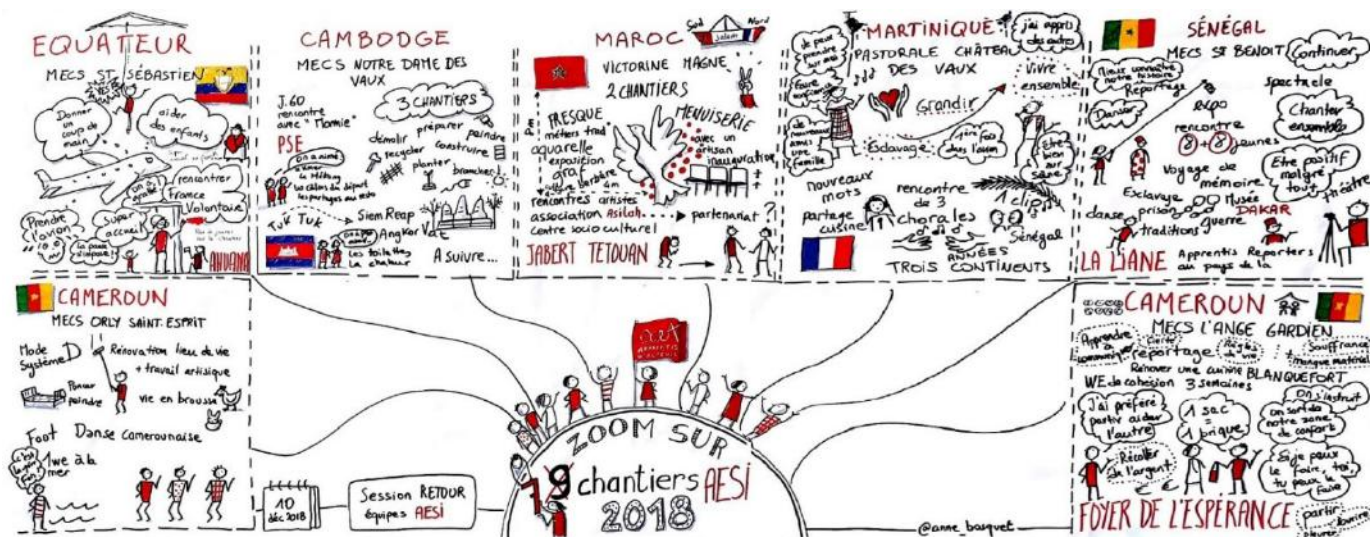 EQUATEUR
MECS ST SÉBASTIEN
Donner
un
coup de
main
aider
des enfants
rencontrer
France
Volontaire
Prendre
l'avion
Super
accueil
CAMBODGE
MECS NOTRE DAME DES
VAUX
J.60
rencontre
avec "Mamie"
PSE
3 CHANTIERS
démolir
préparer
peindre
recycler
construire
planter
brancher
on a aimé
le Mékong
Tuk Tuk
Siem Reap
Angkor Vat
Les toilettes
la chaleur
A suivre...
MAROC
Sud
Nord
Salam
VICTORINE MAGNE
2 CHANTIERS
FRESQUE
métiers trad
aquarelle
exposition
graf
culture berbère
4m
MENUISERIE
avec un
artisan
inauguration
rencontres artistes
association Asilah
centre socio culturel
partenariat ?
JABERT TETOUAN
MARTINIQUE
PASTORALE CHÂTEAU
DES VAUX
j'ai appris
des autres
Vivre
ensemble
Grandir
Esclavage
1ère fois
dans l'avion
de nouveaux
amis une
famille
Être
bien sur
scène
nouveaux
mots
partage
cuisine
rencontre
de 3
chorales
1 clip
Sénégal
ANNÉES
TROIS CONTINENTS
SÉNÉGAL
MECS ST BENOIT
Continuer
Mieux connaître
notre histoire
Reportage
spectacle
Danser
expo
rencontre
8 + 8 jeunes
Chanter
ensemble
Voyage de
mémoire
Être positif
malgré
tout
théâtre
Esclavage
prison
Musée
guerre
DAKAR
danse
traditions
LA LIANE
Apprentis Reporters
au pays de la
CAMEROUN
MECS ORLY SAINT-ESPRIT
Mode
Système D
Rénovation lieu de vie
+ travail artistique
Poncer
peindre
vie en brousse
Foot
Danse Camerounaise
1 we à la
mer
10
déc 2018
Session RETOUR
équipes AESI
ZOOM SUR
9 chantiers AESI
2018
@anne_bosquet
CAMEROUN
MECS L'ANGE GARDIEN
Apprendre
à
communiquer
Fierté
reportage
Règles
de vie
Souffrance
manque matériel
Rénover une cuisine BLANQUEFORT
WE de cohésion 3 semaines
On s'instruit
J'ai préféré
partir aider
l'autre
1 sac
=
1 brique
On sort de
notre zone
de confort
Récolter
de l'argent
Si je peux
le faire, toi,
tu peux le
faire
FOYER DE L'ESPERANCE
partir
sourire
pleurer